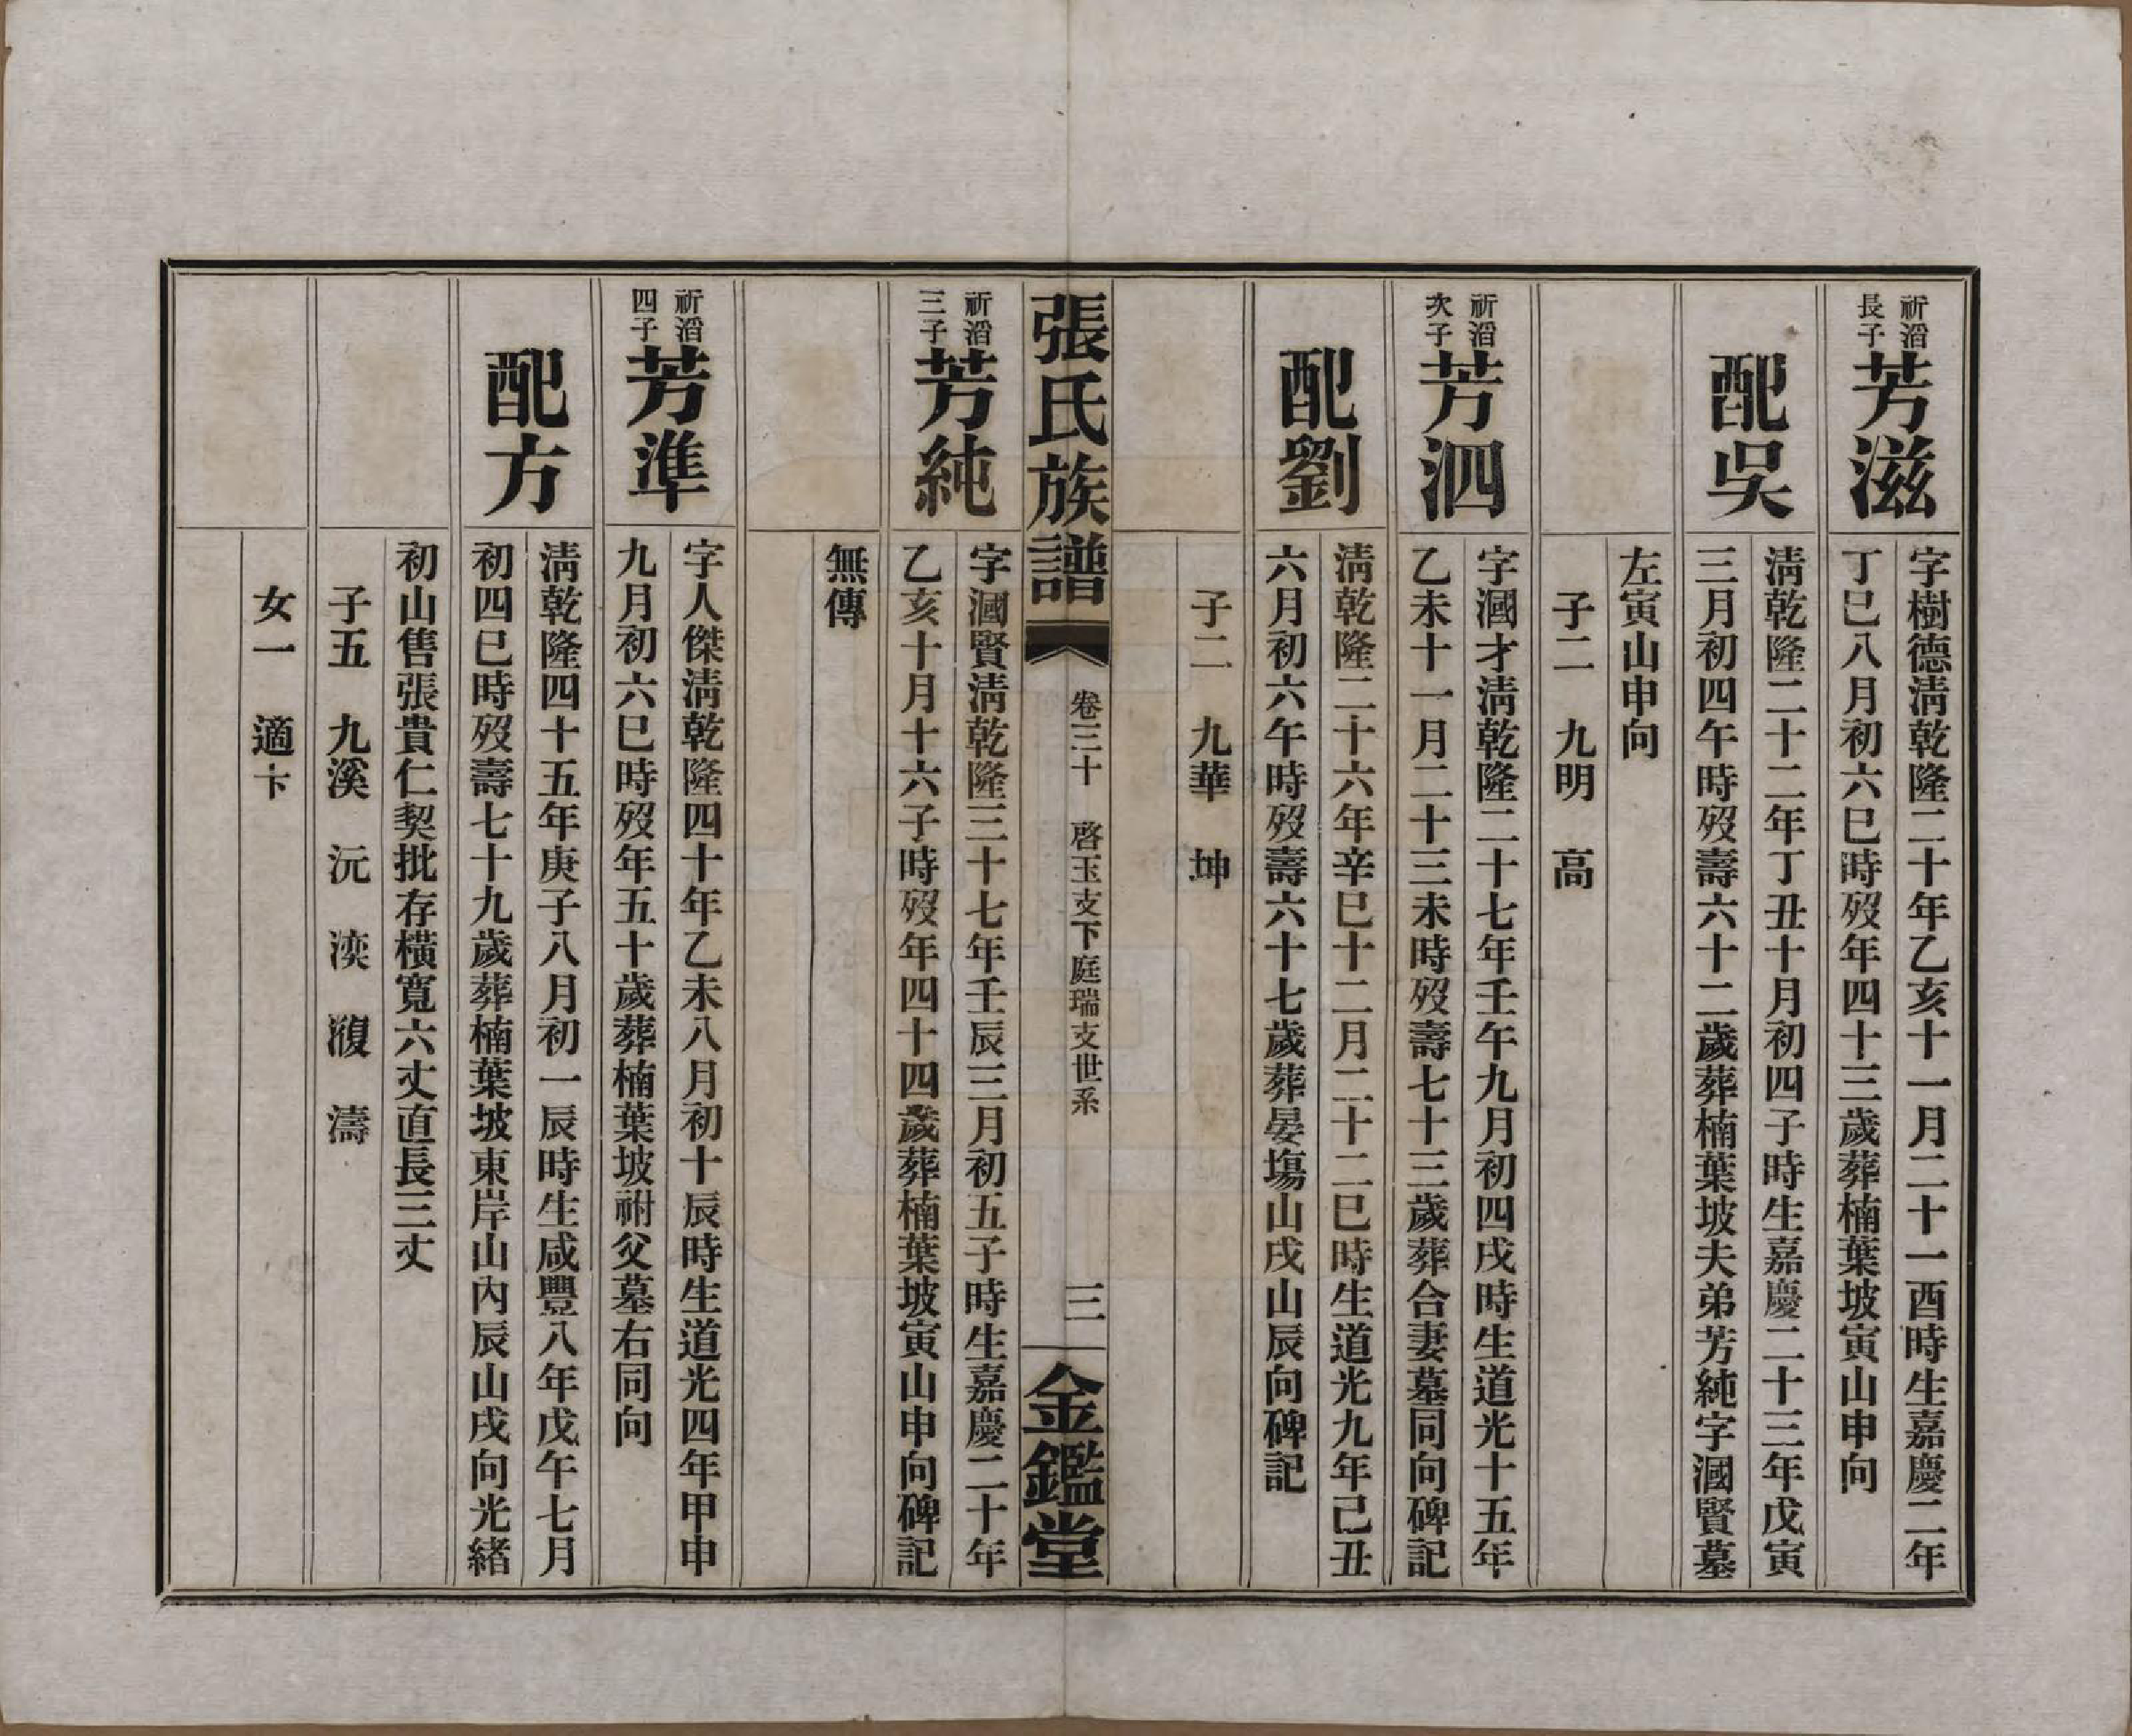 祈滔
長子
芳滋
字樹德淸乾隆二十年乙亥十一月二十一酉時生嘉慶二年
丁巳八月初六巳時歿年四十三歲葬楠葉坡寅山申向
配吳
淸乾隆二十二年丁丑十月初四子時生嘉慶二十三年戊寅
三月初四午時歿壽六十二歲葬楠葉坡夫弟芳純字漍賢墓
左寅山申向
子二 九明 高
祈滔
次子
芳泗
字漍才淸乾隆二十七年壬午九月初四戌時生道光十五年
乙未十一月二十三未時歿壽七十三歲葬合妻墓同向碑記
配劉
淸乾隆二十六年辛巳十二月二十二巳時生道光九年己丑
六月初六午時歿壽六十七歲葬晏塲山戌山辰向碑記
子二 九華 坤
張氏族譜
卷三十 啓玉支下庭瑞支世系
三
金鑑堂
祈滔
三子
芳純
字漍賢淸乾隆三十七年壬辰三月初五子時生嘉慶二十年
乙亥十月十六子時歿年四十四歲葬楠葉坡寅山申向碑記
無傳
祈滔
四子
芳準
字人傑淸乾隆四十年乙未八月初十辰時生道光四年甲申
九月初六巳時歿年五十歲葬楠葉坡祔父墓右同向
配方
淸乾隆四十五年庚子八月初一辰時生咸豐八年戊午七月
初四巳時歿壽七十九歲葬楠葉坡東岸山內辰山戌向光緖
初山售張貴仁契批存橫寬六丈直長三丈
子五 九溪 沅 湙 澓 濤
女一 適卞